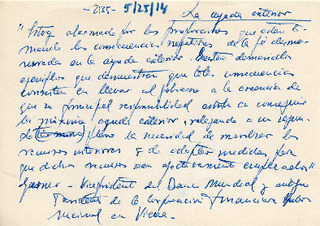 -2135- 5/25/14
La ayuda exterior
"Estoy alarmado por las proporciones que están to-
mando las consecuencias negativas de la fe desme-
surada en la ayuda exterior. Existen demasiados
ejemplos que demuestran que tales consecuencias
consisten en llevar al gobierno a la creencia de
que su principal responsabilidad estriba en conseguir
la máxima ayuda exterior, relegando a un segun-
do término la necesidad de movilizar los
recursos interiores y de adoptar medidas para
que dichos recursos sean efectivamente empleados"
Garner - Vicepresident del Banco Mundial y antiguo
Presidente de la Corporación Financiera Inter
nacional en Viena.